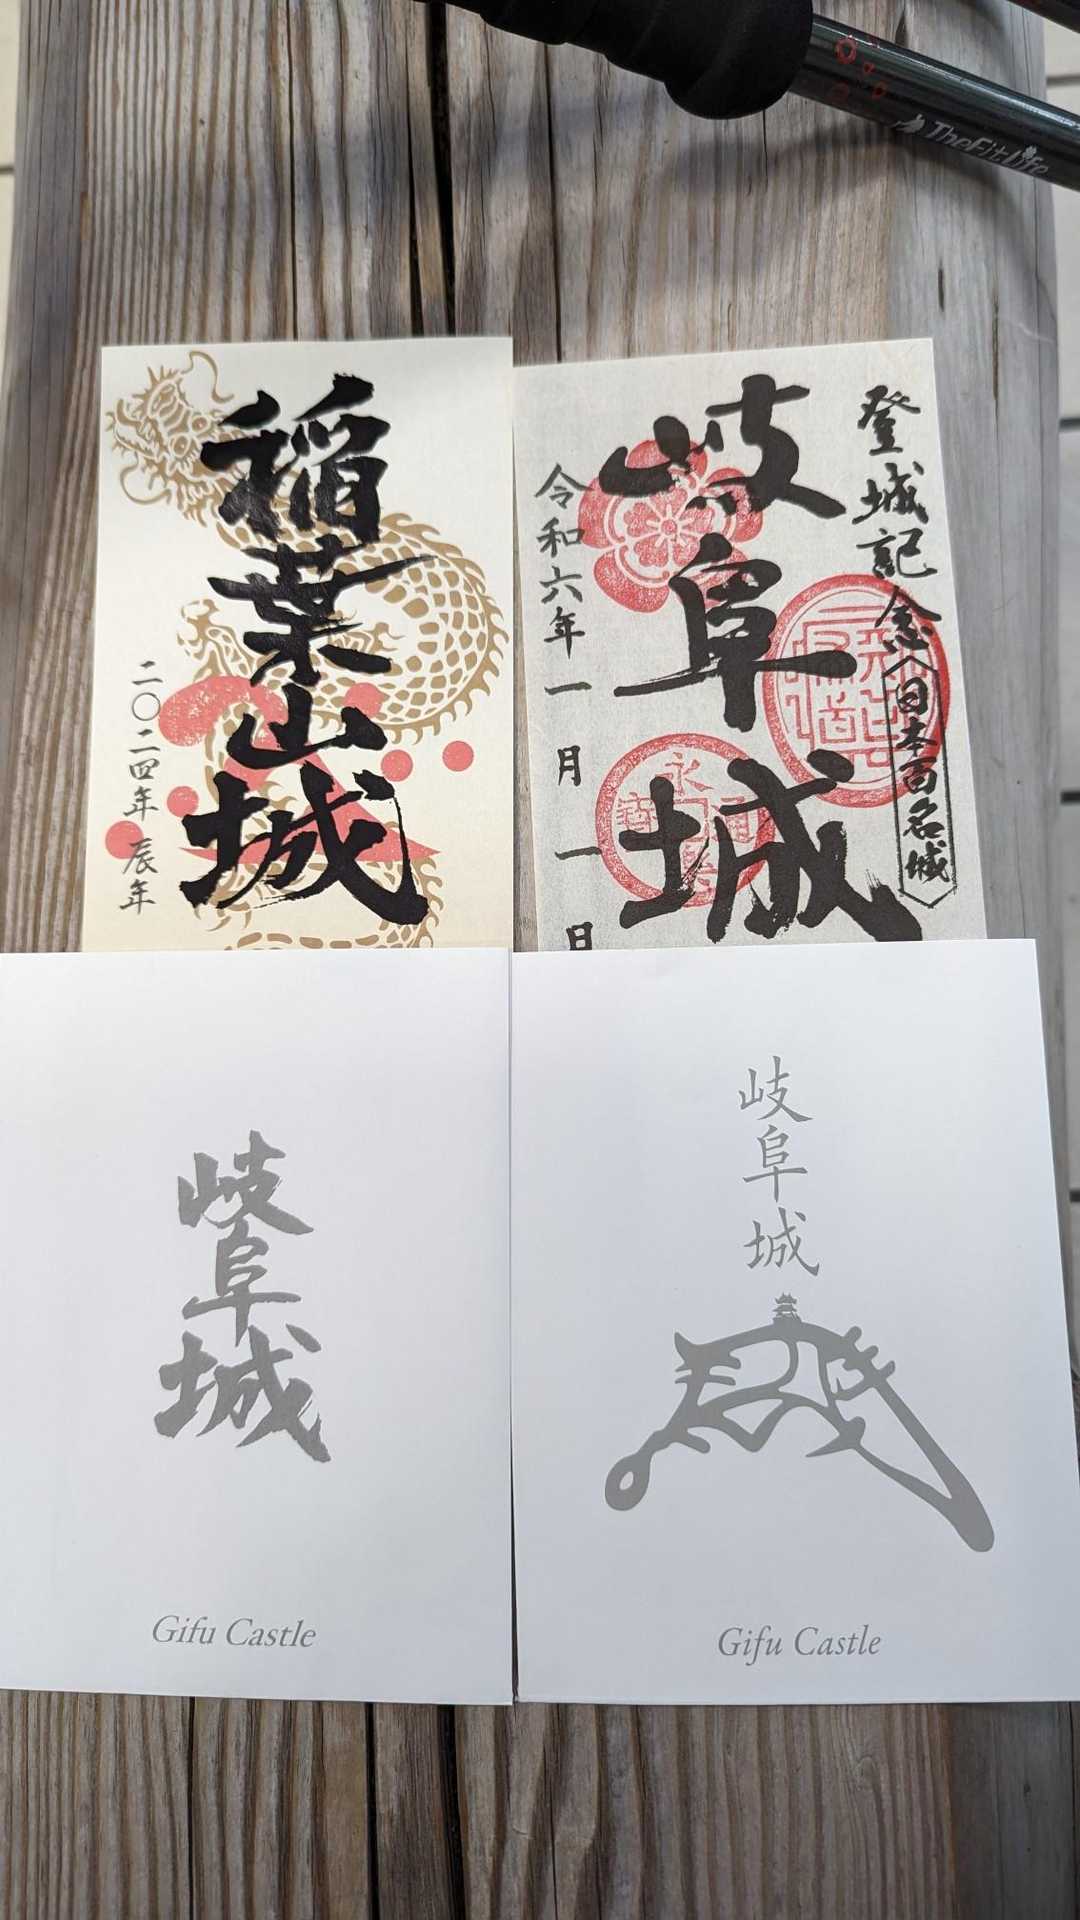 TheFitLife
稲葉山城
二〇二四年 辰年
登城記念
日本百名城
岐阜城
令和六年一月一日
永楽通寳
岐阜城
Gifu Castle
岐阜城
Gifu Castle